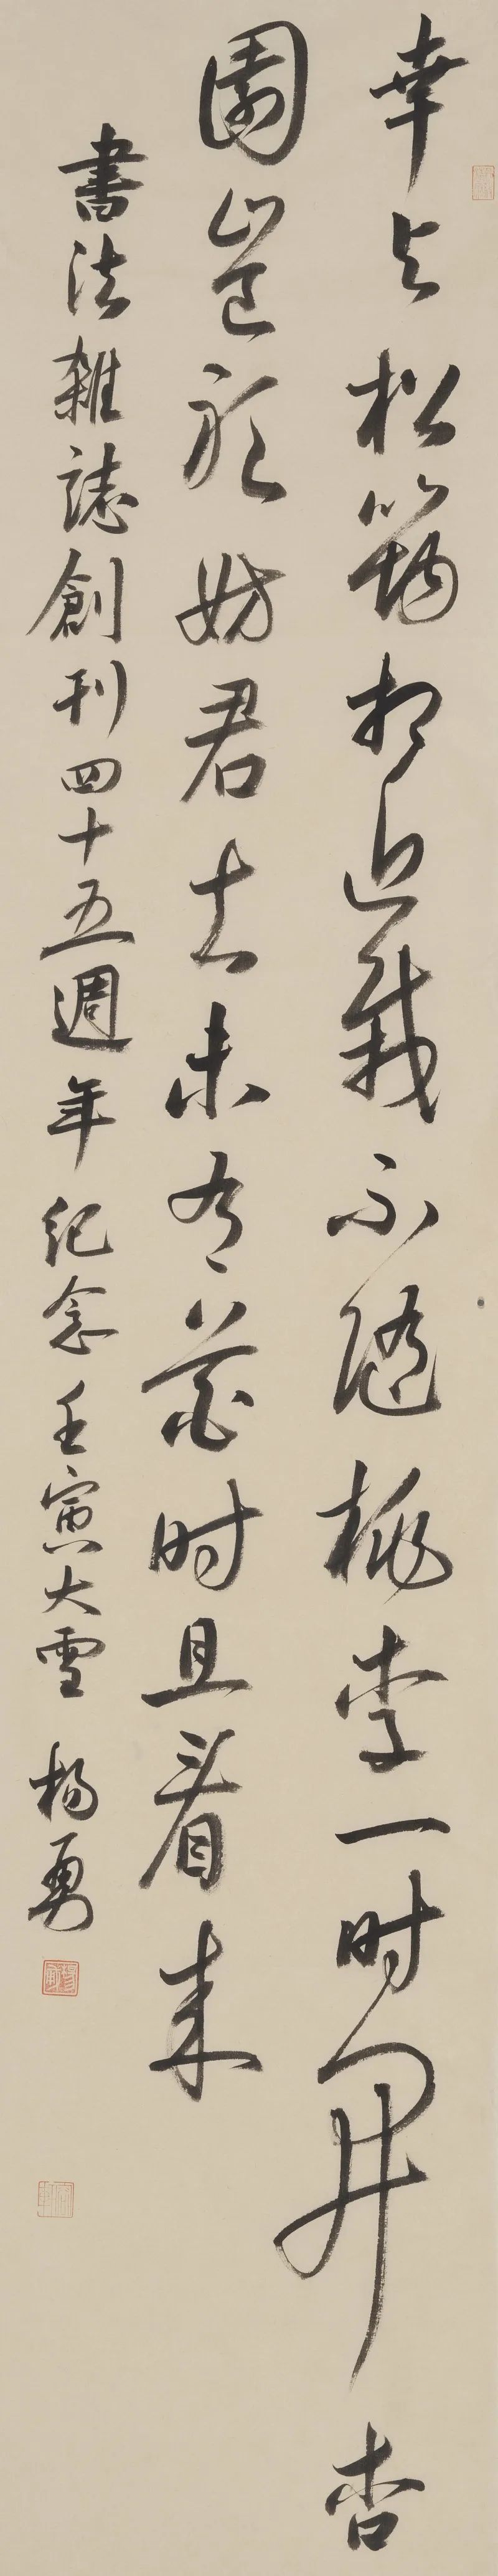 幸与松筠相近栽不随桃李一时開杏
園豈敢妨君去未有花时且看来
書法雜誌創刊四十五週年紀念壬寅大雪 楊勇